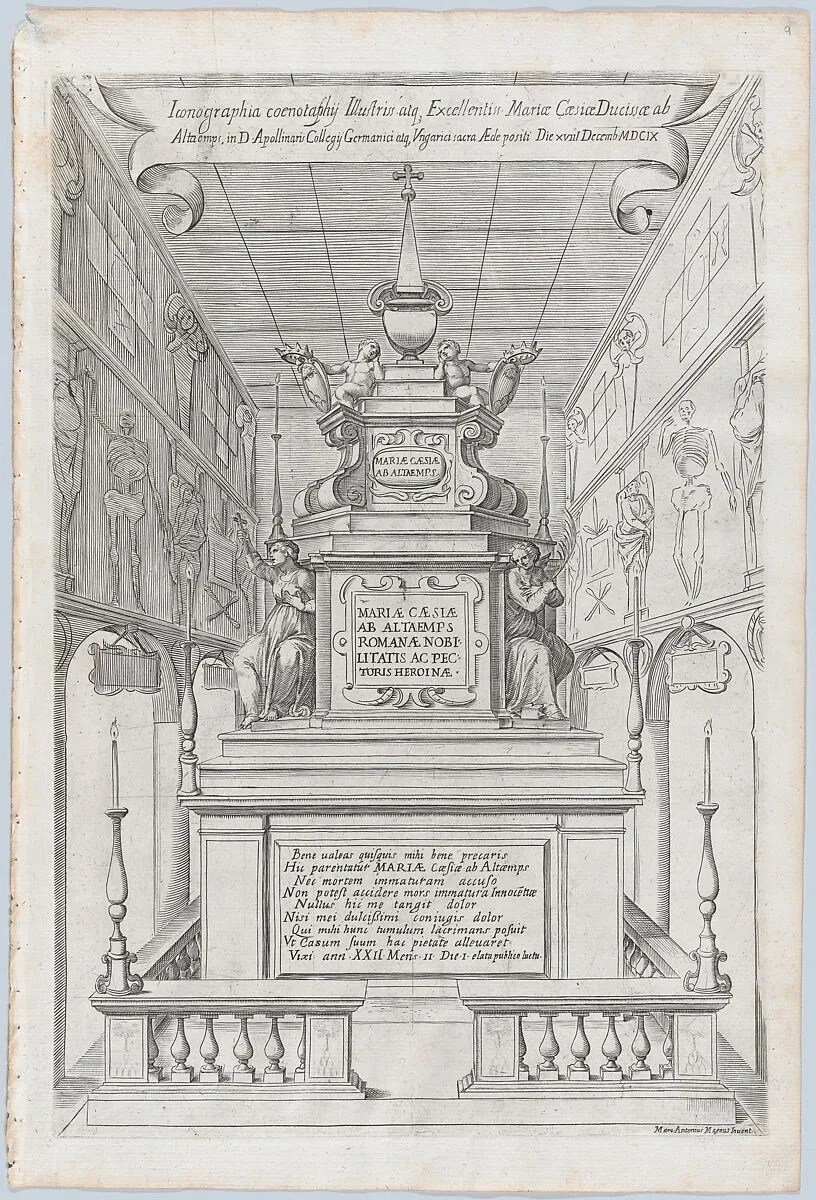 9
Iconographia coenotaphij Illustriss atq, Excellentiss Mariæ Cæsiæ Ducissæ ab
Altaemps, in D Apollinaris Collegij Germanici atq, Vngarici sacra Æde positi Die xviii Decemb MDCIX
MARIÆ CÆSIÆ
AB ALTAEMPS
MARIÆ CÆSIÆ
AB ALTAEMPS
ROMANÆ NOBI·
LITATIS AC PEC·
TORIS HEROINÆ ·
Bene ualeas quisquis mihi bene precaris
Hic parentatur MARIÆ Cæsiæ ab Altæmps
Nec mortem immaturam accuso
Non potest accidere mors immatura Innocẽtiæ
Nullus hic me tangit dolor
Nisi mei dulcissimi coniugis dolor
Qui mihi hunc tumulum lacrimans posuit
Vt Casum suum hac pietate alleuaret
Vixi ann · XXII Mens · II · Die · I · elata publico luctu ·
Marc Antonius Magnus Inuent.